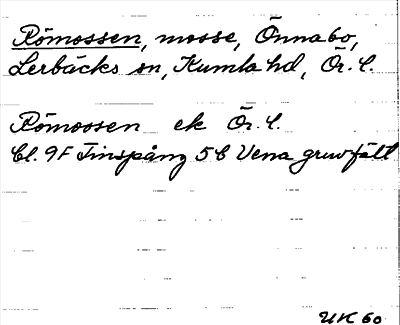 Römossen, mosse, Önnabo,
Lerbäcks sn, Kumla hd, Ör. l.
Römossen ek Ör. l.
Bl. 9F Finspång 5 C Vena gruvfält
UK 60